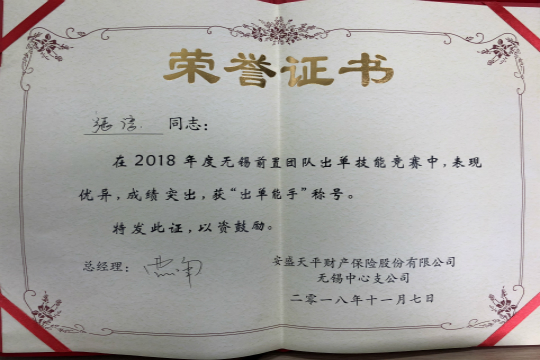 荣誉证书
张 同志：
在2018年度无锡前置团队出单技能竞赛中，表现
优异，成绩突出，获“出单能手”称号。
特发此证，以资鼓励。
总经理：
安盛天平财产保险股份有限公司
无锡中心支公司
二零一八年十一月七日